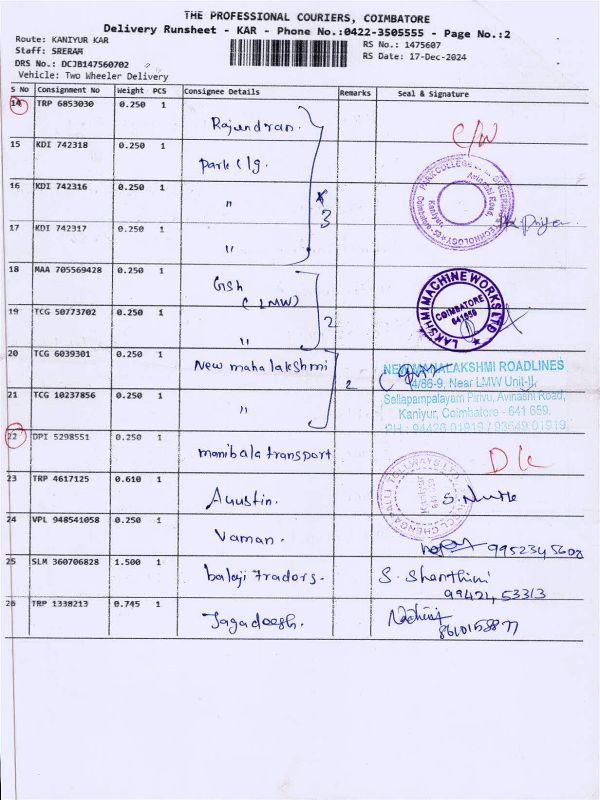 THE PROFESSIONAL COURIERS, COIMBATORE
Delivery Runsheet - KAR - Phone No.:0422-3505555 - Page No.:2
Route: KANIYUR KAR
RS No.: 1475607
Staff: SRERAM
RS Date: 17-Dec-2024
DRS No.: DCJB147560702
Vehicle: Two Wheeler Delivery
S No Consignment No Weight PCS Consignee Details Remarks Seal & Signature
14 TRP 6853030 0.250 1 Rajendran. C/W
15 KDI 742318 0.250 1 Park Clg.
16 KDI 742316 0.250 1 " 3
17 KDI 742317 0.250 1 "
18 MAA 705569428 0.250 1 Gsh
(LMW)
LAKSHMI MACHINE WORKS LTD
COIMBATORE
641659
19 TCG 50773702 0.250 1 " 2
20 TCG 6039301 0.250 1 New mahalakshmi 2
NEW MAHALAKSHMI ROADLINES
4/86-9, Near LMW Unit-II,
Sellapampalayam Pirivu, Avinashi Road,
Kaniyur, Coimbatore - 641 659.
PH : 94426 01919 / 93649 01919
21 TCG 10237856 0.250 1 "
22 DPI 5298551 0.250 1 manibala transport
23 TRP 4617125 0.610 1 Auustin.
24 VPL 948541058 0.250 1 Vaman. 9952345608
25 SLM 360706828 1.500 1 balaji tradors. S. Shanthini
99424 53313
26 TRP 1338213 0.745 1 Jagadeesh.
8610158877